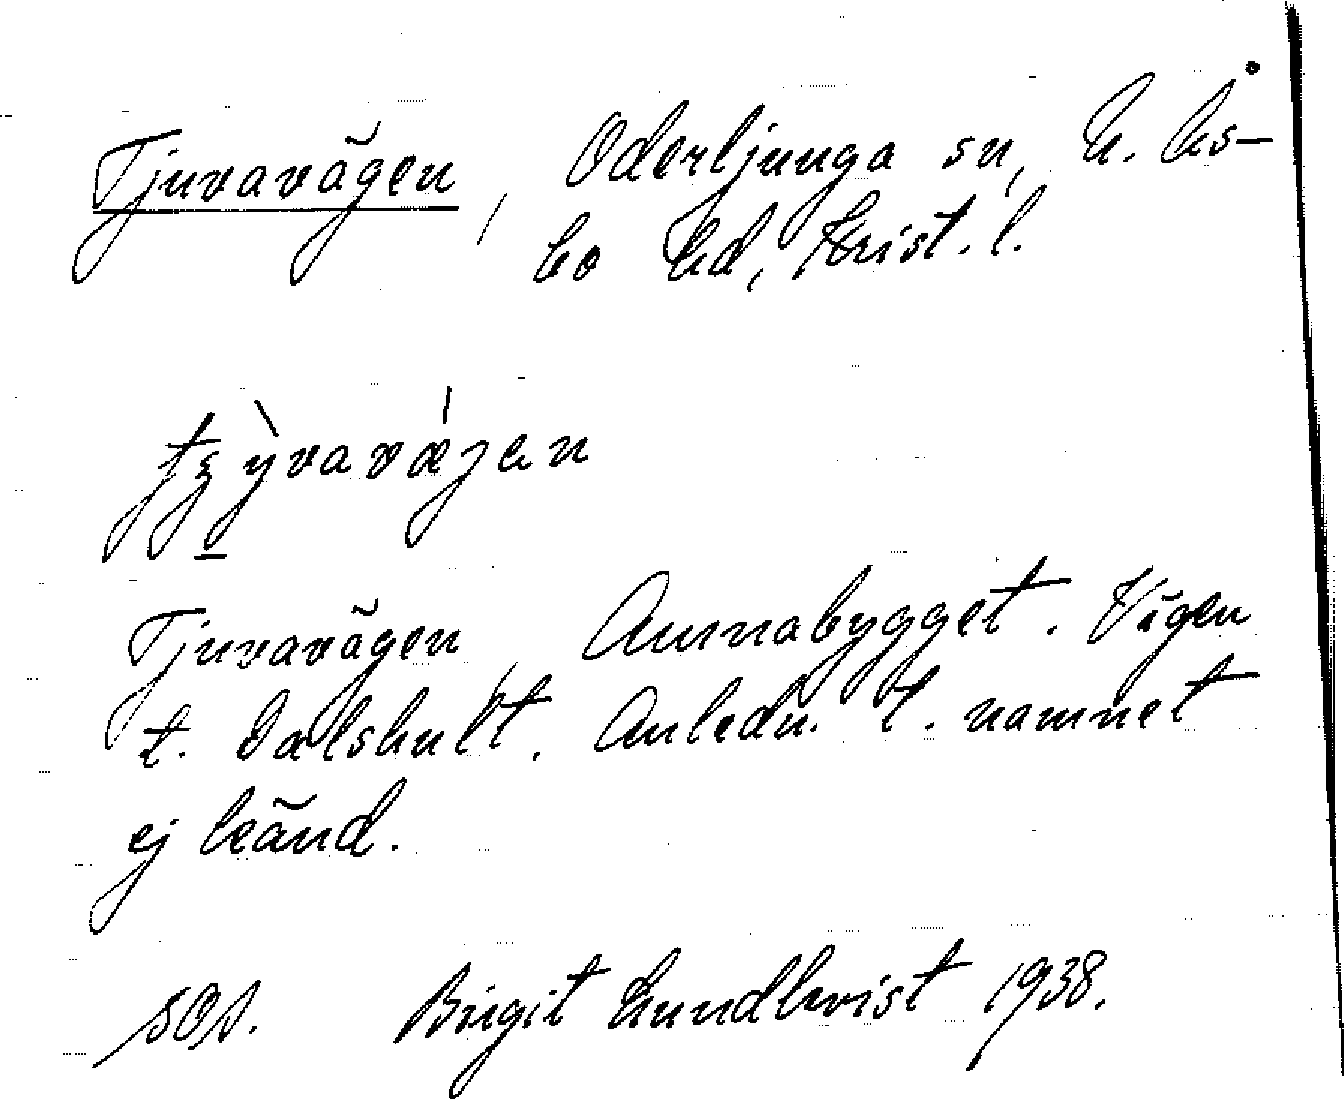 Tjuvavägen, Oderljunga sn, N. Ås-
bo hd, Krist. l.
Tjuvavägen, Annabygget. Vägen
t. Dalshult. Anledn. t. namnet
ej känd.
Birgit Lundkvist 1938.